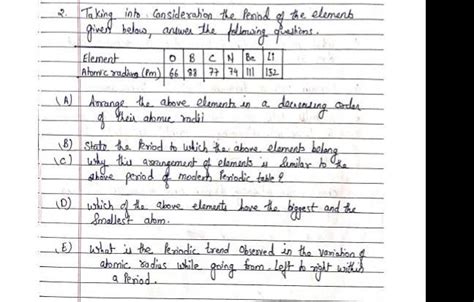 2. Taking into Consideration the Period of the elements
given below, answer the following questions.
Element O B C N Be Li
Atomic radius (Pm) 66 88 77 74 111 152
(A) Arrange the above elements in a decreasing order
of their atomic radii
(B) State the Period to which the above elements belong
(C) Why this arrangement of elements is Similar to the
above period of modern Periodic table?
(D) Which of the above elements have the biggest and the
Smallest atom.
(E) What is the Periodic trend Observed in the variation of
atomic radius while going from left to right within
a Period.